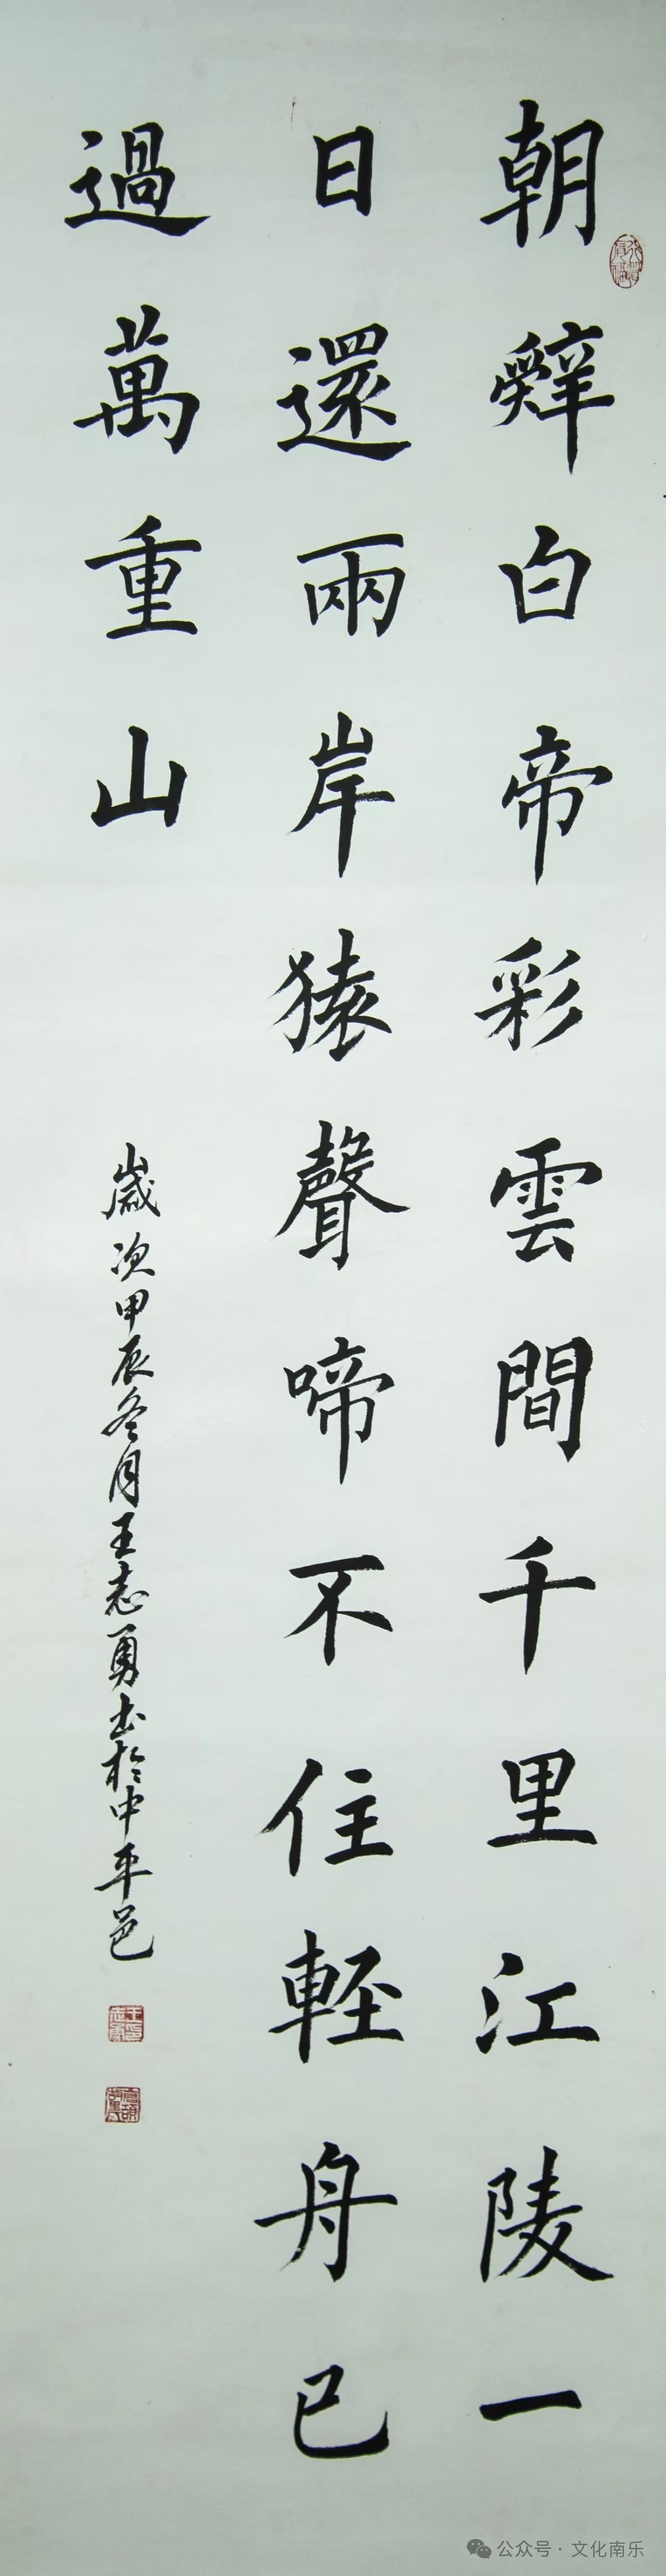 朝辤白帝彩雲間千里江陵一
日還兩岸猿聲啼不住輕舟已
過萬重山
歲次甲辰冬月王志勇書於中平邑
公众号·文化南乐